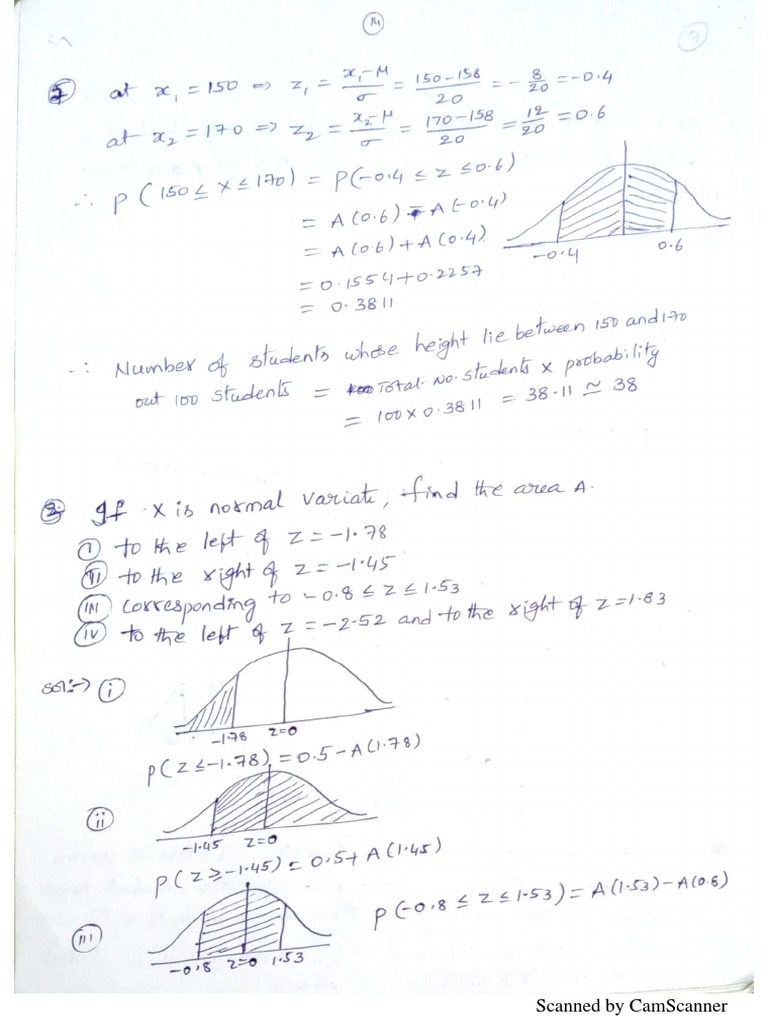 14
7
I at x₁ = 150 ⇒ z₁ = (x₁-μ)/σ = (150-158)/20 = -8/20 = -0.4
at x₂ = 170 ⇒ z₂ = (x₂-μ)/σ = (170-158)/20 = 12/20 = 0.6
∴ P(150 ≤ X ≤ 170) = P(-0.4 ≤ z ≤ 0.6)
= A(0.6) - A(-0.4)
= A(0.6) + A(0.4)
-0.4 0.6
= 0.1554 + 0.2257
= 0.3811
∴ Number of students whose height lie between 150 and 170
out 100 students = Total No. students x probability
= 100 x 0.3811 = 38.11 ≃ 38
② If X is normal variate, find the area A.
(i) to the left of z = -1.78
(ii) to the right of z = -1.45
(iii) corresponding to -0.8 ≤ z ≤ 1.53
(iv) to the left of z = -2.52 and to the right of z = 1.83
sol:-> (i)
-1.78 z=0
P(z ≤ -1.78) = 0.5 - A(1.78)
(ii)
-1.45 z=0
P(z ≥ -1.45) = 0.5 + A(1.45)
P(-0.8 ≤ z ≤ 1.53) = A(1.53) - A(0.8)
(iii)
-0.8 z=0 1.53
Scanned by CamScanner